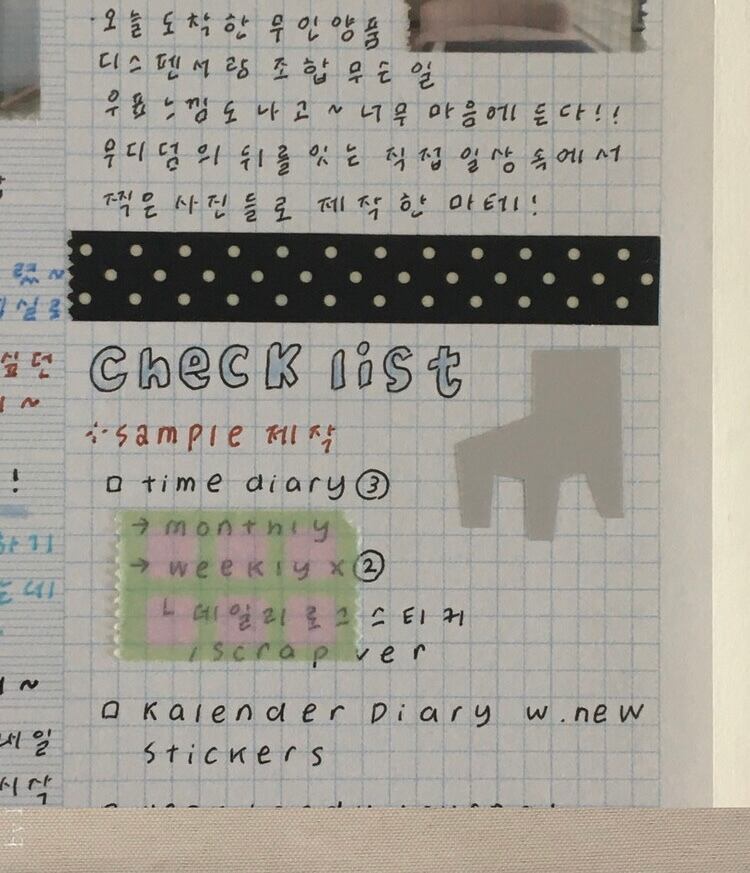 · 오늘 도착한 무인양품
디스펜서랑 조합무슨일
우표느낌도 나고 ~ 너무 마음에든다!!
우디덤의 뒤를 잇는 직접 일상 속에서
찍은 사진들로 제작한 마테!
Check list
sample 제작
□ time diary ③
→ monthly
→ weekly x ②
ㄴ 데일리로그 스티커
/scrap ver
□ Kalender Diary w. new
stickers
싶던
~
!
하기
는데
~
내일
시작